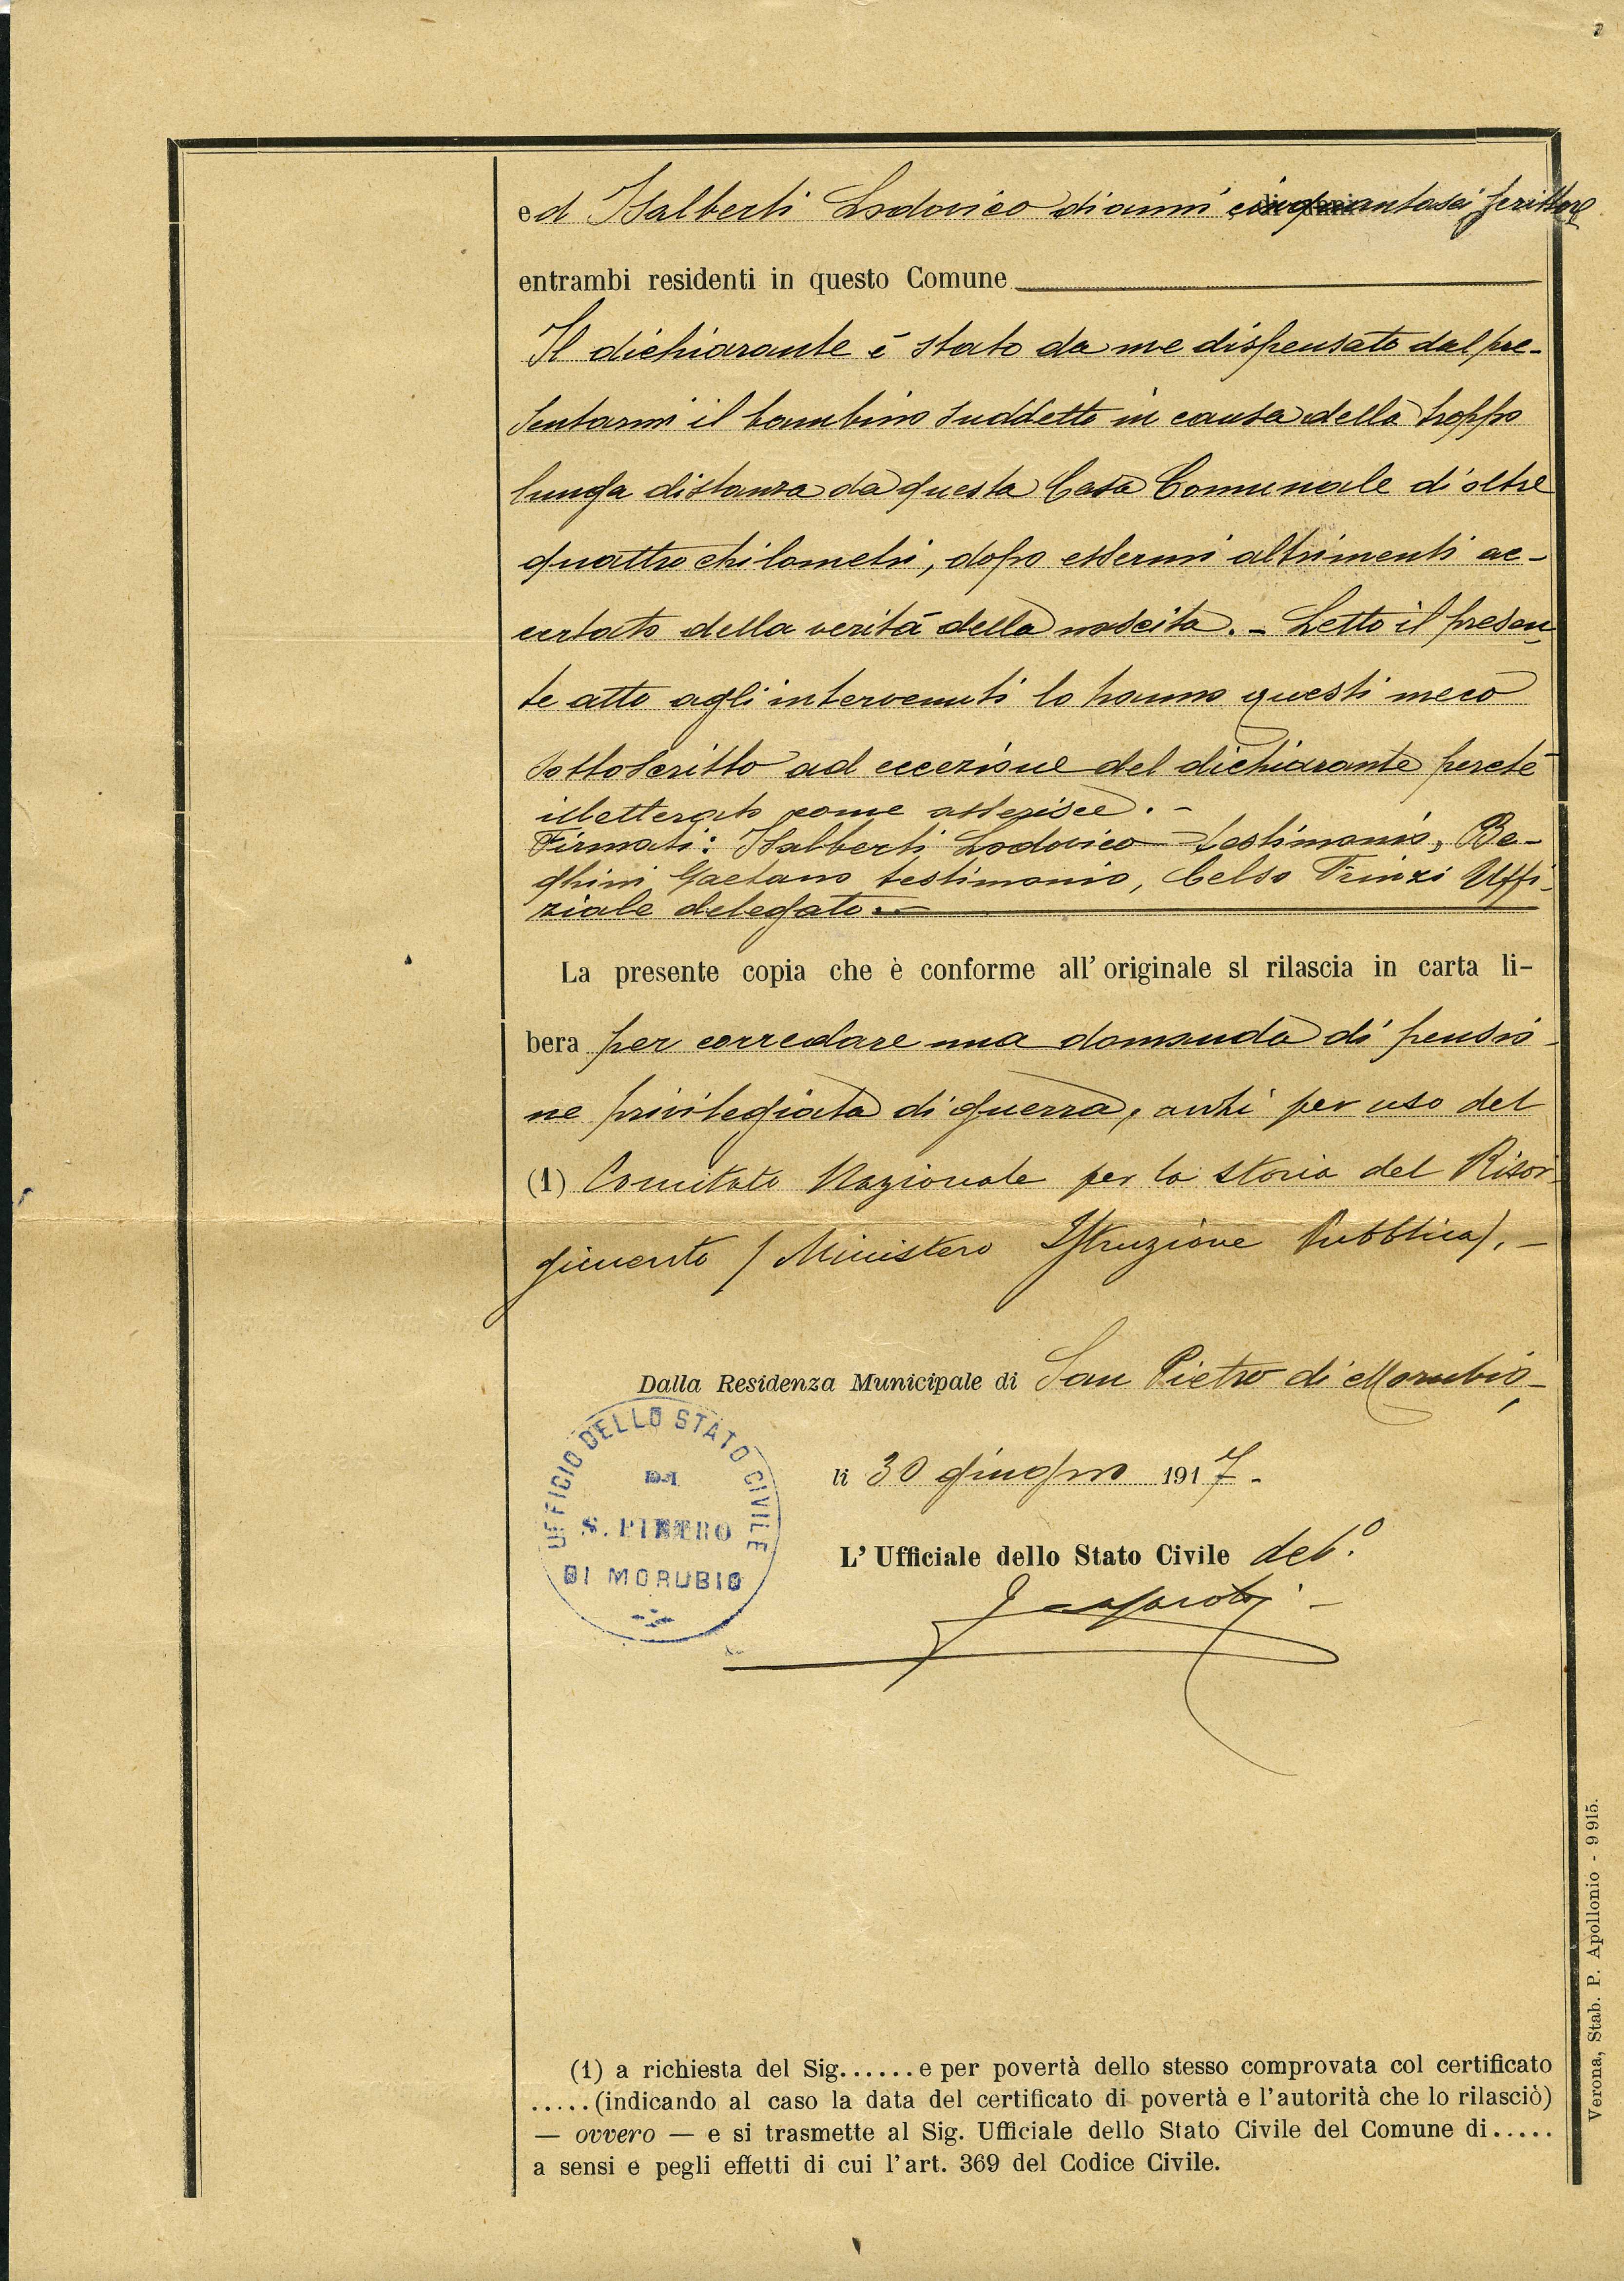 ed Isalberti Lodovico di anni cinquantasei scrittore
entrambi residenti in questo Comune
Il dichiarante è stato da me dispensato dal pre-
sentarmi il bambino suddetto in causa della troppo
lunga distanza da questa Casa Comunale di oltre
quattro chilometri, dopo essermi altrimenti ac-
certato della verità della nascita. - Letto il presen
te atto agli intervenuti lo hanno questi meco
sottoscritto ad eccezione del dichiarante perché
illetterato come asserisce. -
Firmati: Isalberti Lodovico testimonio, Be-
ghini Gaetano testimonio, Celso Trinzi Uffi-
ziale delegato. -
La presente copia che è conforme all' originale sl rilascia in carta li-
bera per corredare una domanda di pensio-
ne privilegiata di guerra, anzi per uso del
(1) Comitato Nazionale per la storia del Risor-
gimento (Ministero Istruzione Pubblica). -
Dalla Residenza Municipale di San Pietro di Morubio
UFFICIO DELLO STATO CIVILE
DI
S. PIETRO
DI MORUBIO
li 30 giugno 1917.-
L' Ufficiale dello Stato Civile del.º
(1) a richiesta del Sig...... e per povertà dello stesso comprovata col certificato
..... (indicando al caso la data del certificato di povertà e l'autorità che lo rilasciò)
— ovvero — e si trasmette al Sig. Ufficiale dello Stato Civile del Comune di.....
a sensi e pegli effetti di cui l'art. 369 del Codice Civile.
Verona, Stab. P. Apollonio - 9 915.